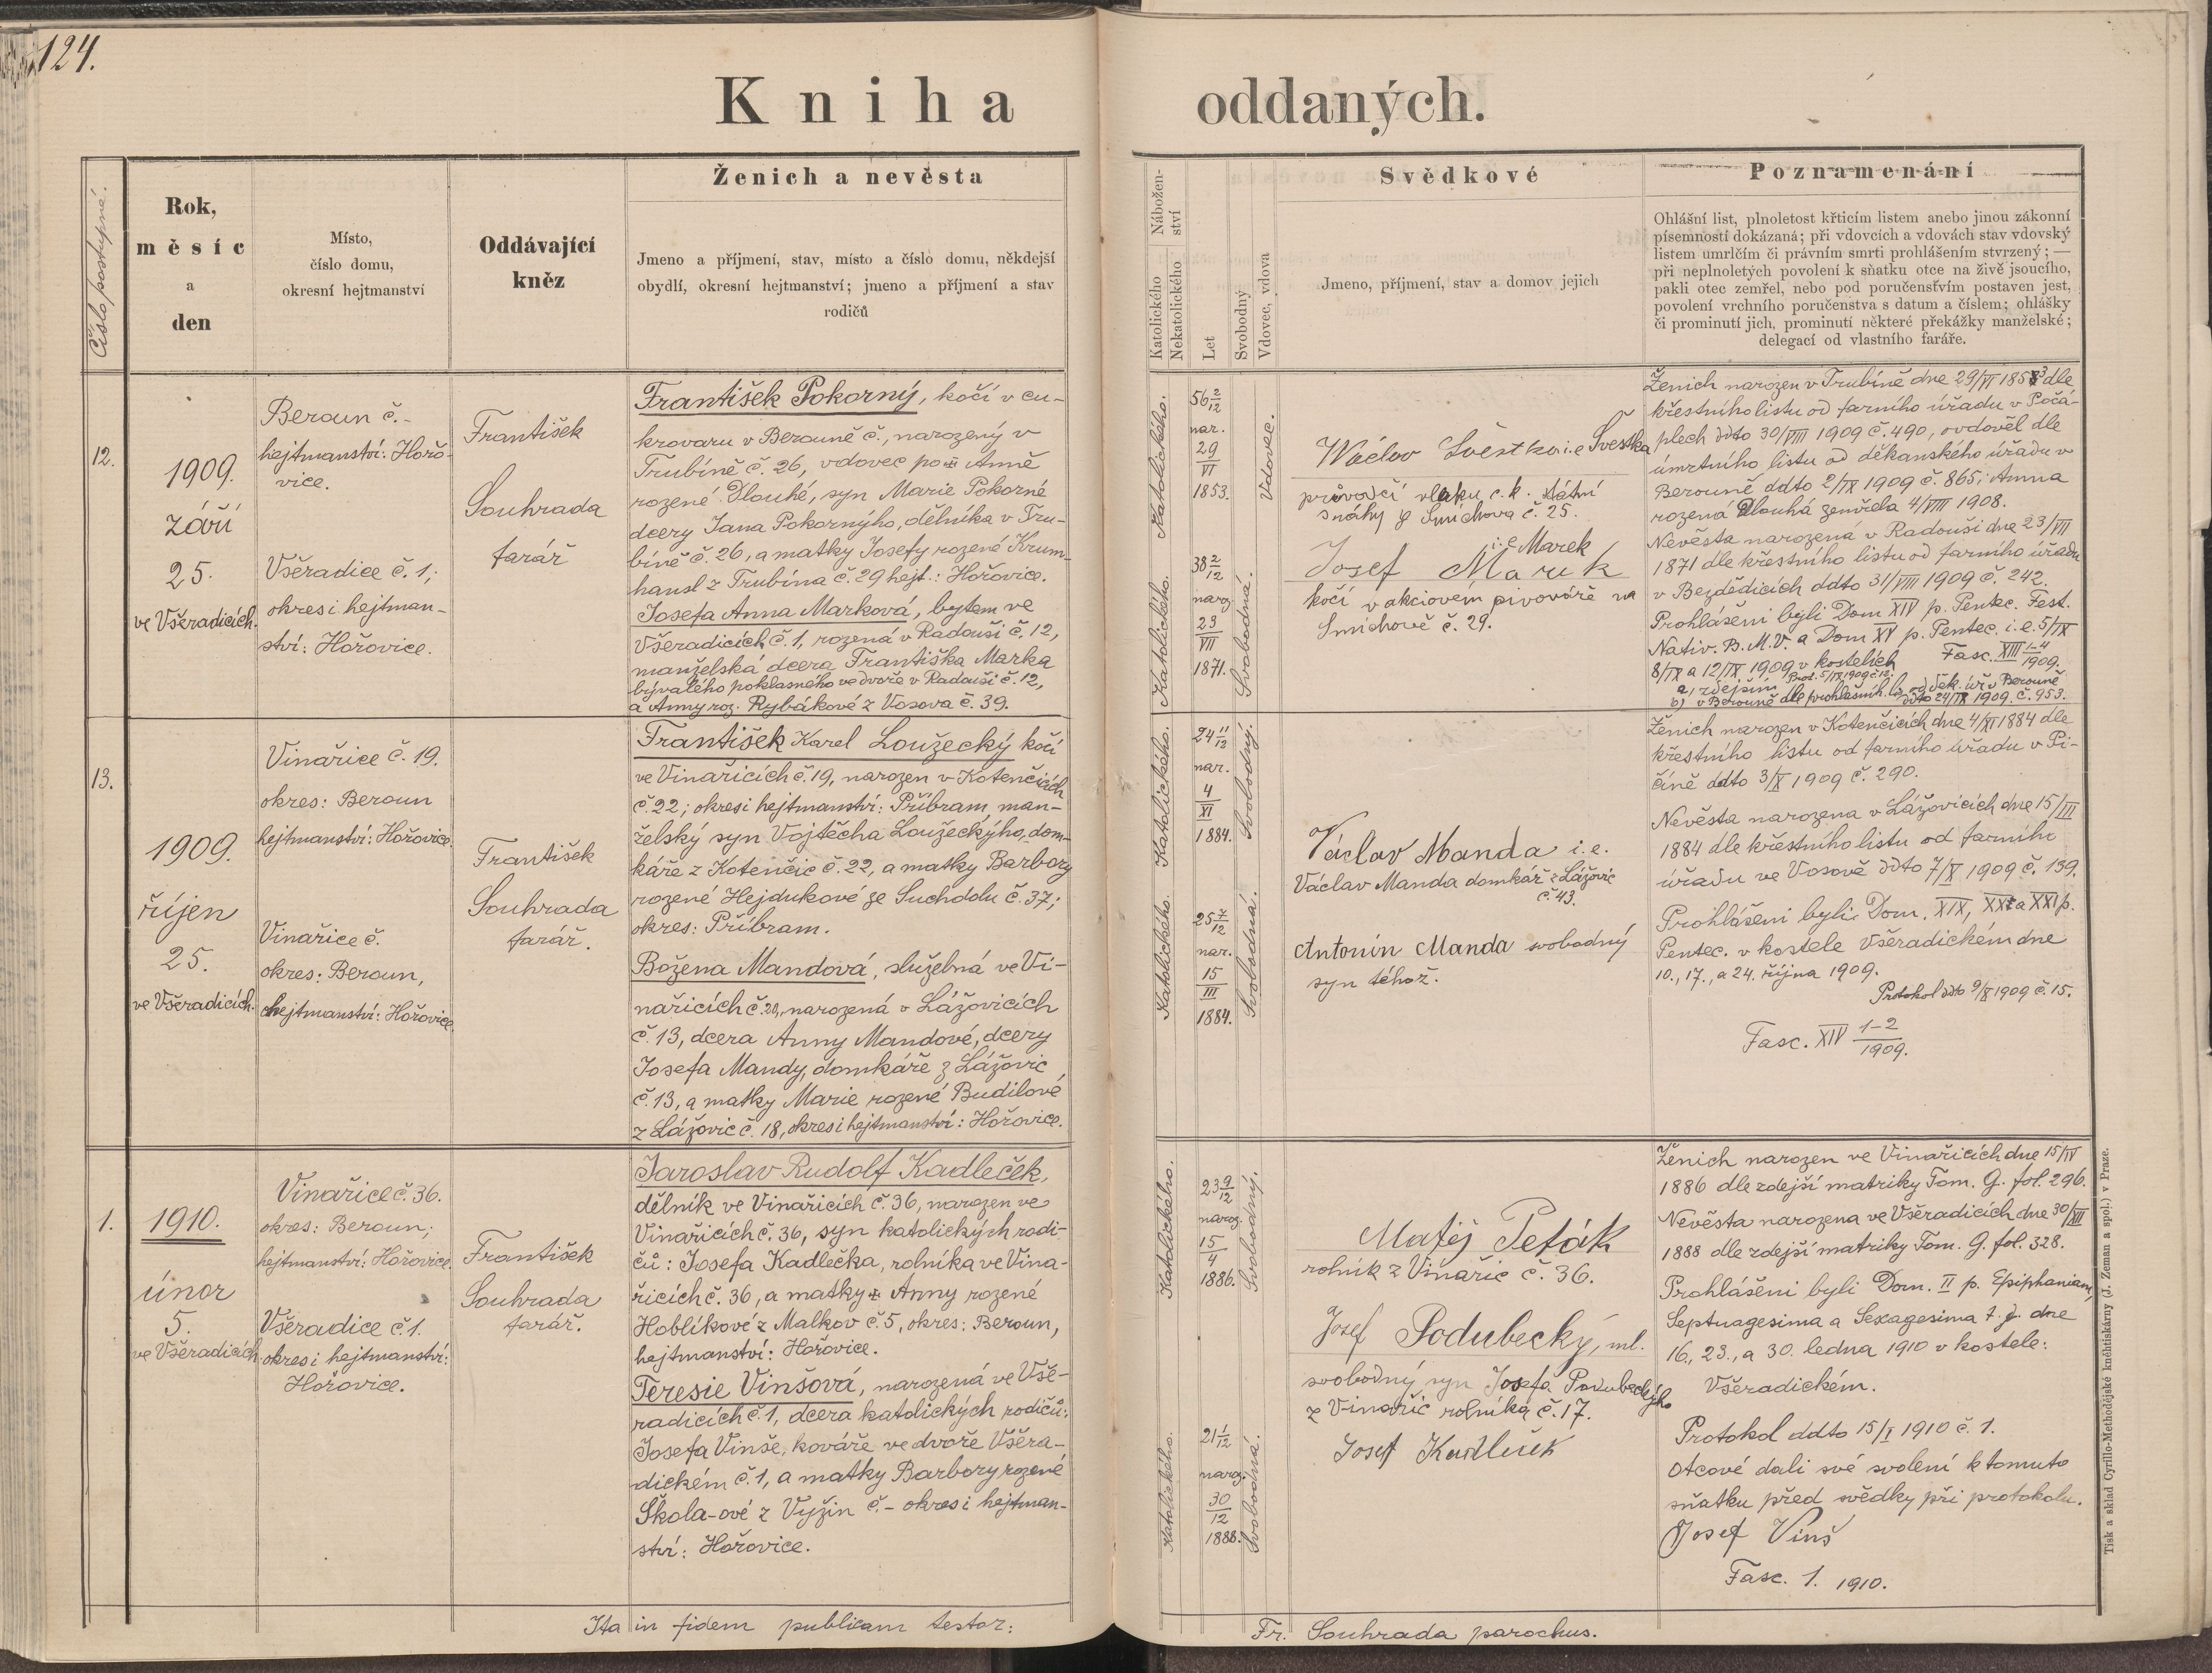 124.
Kniha oddaných.
Číslo postupné.
Rok,
měsíc
a
den
Místo,
číslo domu,
okresní hejtmanství
Oddávající
kněz
Ženich a nevěsta
Jmeno a příjmení, stav, místo a číslo domu, někdejší
obydlí, okresní hejtmanství; jmeno a příjmení a stav
rodičů
Nábožen-
ství
Katolického
Nekatolického
Let
Svobodný
Vdovec, vdova
Svědkové
Jmeno, příjmení, stav a domov jejich
Poznamenání
Ohlášní list, plnoletost křticím listem anebo jinou zákonní
písemností dokázaná; při vdovcích a vdovách stav vdovský
listem umrlčím či právním smrti prohlášením stvrzený; —
při neplnoletých povolení k sňatku otce na živě jsoucího,
pakli otec zemřel, nebo pod poručenstvím postaven jest,
povolení vrchního poručenstva s datum a číslem; ohlášky
či prominutí jich, prominutí některé překážky manželské;
delegací od vlastního faráře.
12.
1909.
září
25.
ve Všeradicích.
Beroun č.-
hejtmanství: Hořo-
vice.
Všeradice č. 1;
okres i hejtman-
ství: Hořovice.
František
Souhrada
farář
František Pokorný, kočí v cu-
krovaru v Berouně č., narozený v
Trubíně č. 26, vdovec po Anně
rozené Dlouhé, syn Marie Pokorné
dcery Jana Pokornýho, dělníka v Tru-
bíně č. 26, a matky Josefy rozené Krum-
hansl z Trubína č. 29 hejt.: Hořovice.
Josefa Anna Marková, bytem ve
Všeradicích č. 1, rozená v Radouši č. 12,
manželská dcera Františka Marka
bývalého poklasného ve dvoře v Radouši č. 12,
a Anny roz. Rybákové z Vosova č. 39.
Katolického.
56 2/12
nar.
29
VI
1853.
Vdovec.
Katolického.
38 2/12
naroz.
23
VII
1871.
Svobodná.
Václav Švestka i.e Švestka
průvodčí vlaku c. k. státní
dráhy z Smíchova č. 25.
i.e Marek
Josef Marek
kočí v akciovém pivováře na
Smíchově č. 29.
Ženich narozen v Trubíně dne 29/VI 1853 dle
křestního listu od farního úřadu v Počá-
plech ddto 30/VIII 1909 č. 490, ovdověl dle
úmrtního listu od děkanského úřadu v
Berouně ddto 2/IX 1909 č. 865; Anna
rozená Dlouhá zemřela 4/VIII 1908.
Nevěsta narozená v Radouši dne 23/VII
1871 dle křestního listu od farního úřadu
v Bezdědicích ddto 31/VIII 1909 č. 242.
Prohlášeni byli Dom XIV p. Pentec. Fest.
Nativ. B. M. V. a Dom XV p. Pentec. i. e. 5/IX
8/IX a 12/IX 1909 v kostelích Fasc. XIII 1-4/1909.
a, zdejším Prot. 5/IX 1909 č 12.
b) v Berouně dle prohlašníh. lis. od děk. úř v Berouně
ddto 24/IX 1909. č. 953.
13.
1909.
říjen
25.
ve Všeradicích.
Vinařice č. 19.
okres: Beroun
hejtmanství: Hořovice.
Vinařice č.
okres: Beroun,
hejtmanství: Hořovice.
František
Souhrada
farář.
František Karel Loužecký kočí
ve Vinařicích č. 19, narozen v Kotenčicích
č. 22; okres i hejtmanství: Příbram, man-
želský syn Vojtěcha Loužeckýho, dom-
káře z Kotenčic č. 22, a matky Barbory
rozené Hejdukové ze Suchdolu č. 37;
okres: Příbram.
Božena Mandová, služebná ve Vi-
nařicích č. 20, narozená v Lážovicích
č. 13, dcera Anny Mandové, dcery
Josefa Mandy, domkáře z Lážovic
č. 13, a matky Marie rozené Budilové
z Lážovic č. 18, okres i hejtmanství: Hořovice.
Katolického.
24 11/12
nar.
4
XI
1884.
Svobodný.
Katolického.
25 7/12
nar.
15
III
1884.
Svobodná.
Václav Manda i. e.
Václav Manda domkář z Lážovic
č. 43.
Antonín Manda svobodný
syn téhož.
Ženich narozen v Kotenčicích dne 4/XI 1884 dle
křestního listu od farního úřadu v Pi-
číně ddto 3/X 1909 č. 290.
Nevěsta narozena v Lážovicích dne 15/III
1884 dle křestního listu od farního
úřadu ve Vosově ddto 7/X 1909 č. 139.
Prohlášeni byli Dom. XIX, XX a XXI p.
Pentec. v kostele Všeradickém dne
10., 17., a 24. října 1909.
Protokol ddto 9/X 1909 č. 15.
Fasc. XIV 1-2/1909.
1.
1910.
únor
5.
ve Všeradicích.
Vinařice č. 36.
okres: Beroun;
hejtmanství: Hořovice.
Všeradice č. 1.
okres i hejtmanství:
Hořovice.
František
Souhrada
farář.
Jaroslav Rudolf Kadleček,
dělník ve Vinařicích č. 36, narozen ve
Vinařicích č. 36, syn katolických rodi-
čů: Josefa Kadlečka, rolníka ve Vina-
řicích č. 36, a matky Anny rozené
Hoblíkové z Malkov č. 5, okres: Beroun,
hejtmanství: Hořovice.
Teresie Vinšová, narozená ve Vše-
radicích č. 1, dcera katolických rodičů:
Josefa Vinše, kováře ve dvoře Všera-
dickém č. 1, a matky Barbory rozené
Škola-ové z Vyžin č. - okres i hejtman-
ství: Hořovice.
Katolického.
23 9/12
naroz.
15
4
1886.
Svobodný.
Katolického.
21 1/12
naroz.
30
12
1888.
Svobodná.
Matěj Peták
rolník z Vinařic č. 36.
Josef Podubecký, ml.
svobodný syn Josefa Podubeckýho
z Vinařic rolníka č. 17.
Josef Kadleček
Ženich narozen ve Vinařicích dne 15/IV
1886 dle zdejší matriky Tom. G. fol. 296.
Nevěsta narozena ve Všeradicích dne 30/XII
1888 dle zdejší matriky Tom. G. fol. 328.
Prohlášeni byli Dom. II p. Epiphaniam,
Septuagesima a Sexagesima t. j. dne
16., 23., a 30. ledna 1910 v kostele:
Všeradickém.
Protokol ddto 15/I 1910 č. 1.
Otcové dali své svolení k tomuto
sňatku před svědky při protokolu.
Josef Vinš
Fasc. 1. 1910.
Ita in fidem publicam testor:
Fr. Souhrada parochus.
Tisk a sklad Cyrillo-Methodějské knihtiskárny (J. Zeman a spol.) v Praze.